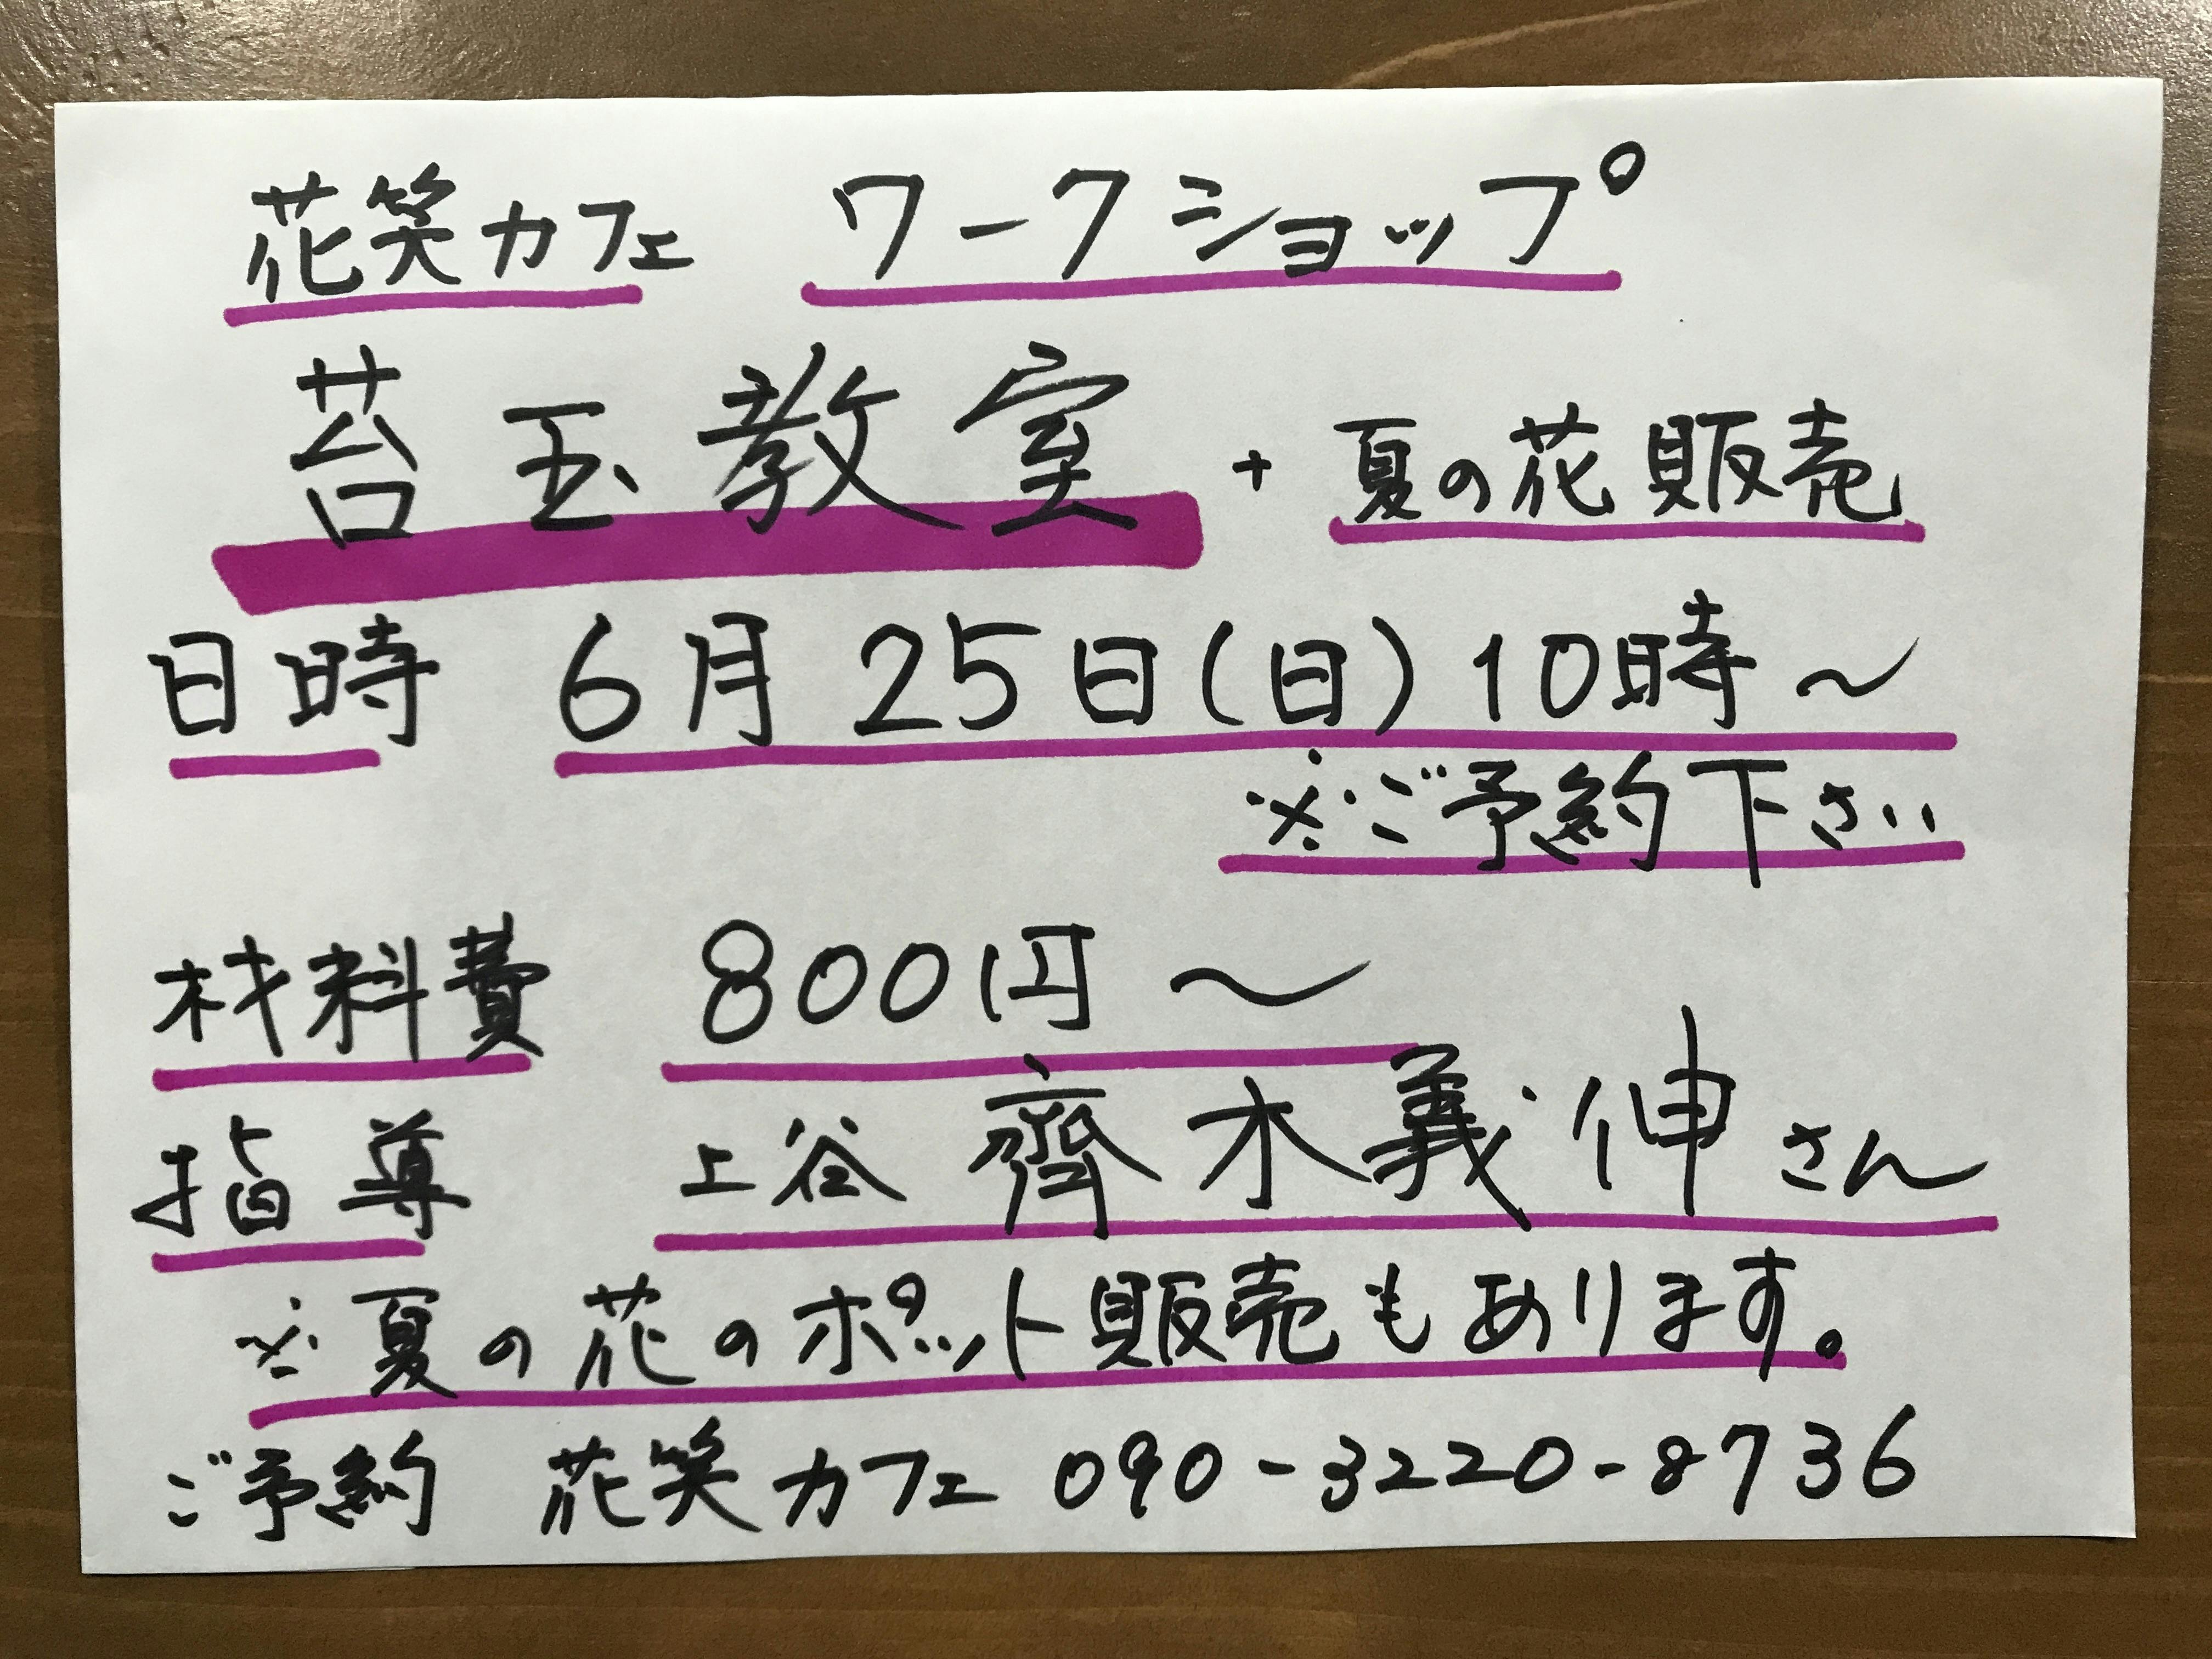 花笑カフェ ワークショップ
苔玉教室 + 夏の花販売
日時 6月25日(日)10時～
※ご予約下さい
材料費 800円～
指導 上谷 齊木義伸さん
※夏の花のポット販売もあります。
ご予約 花笑カフェ 090-3220-8736